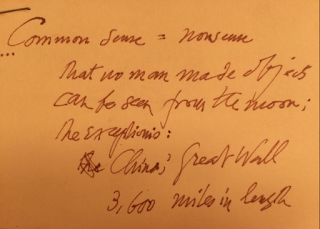 Common sense = nonsense
...
that no man made object
can be seen from the moon;
the exception is:
China's Great Wall
3,600 miles in length